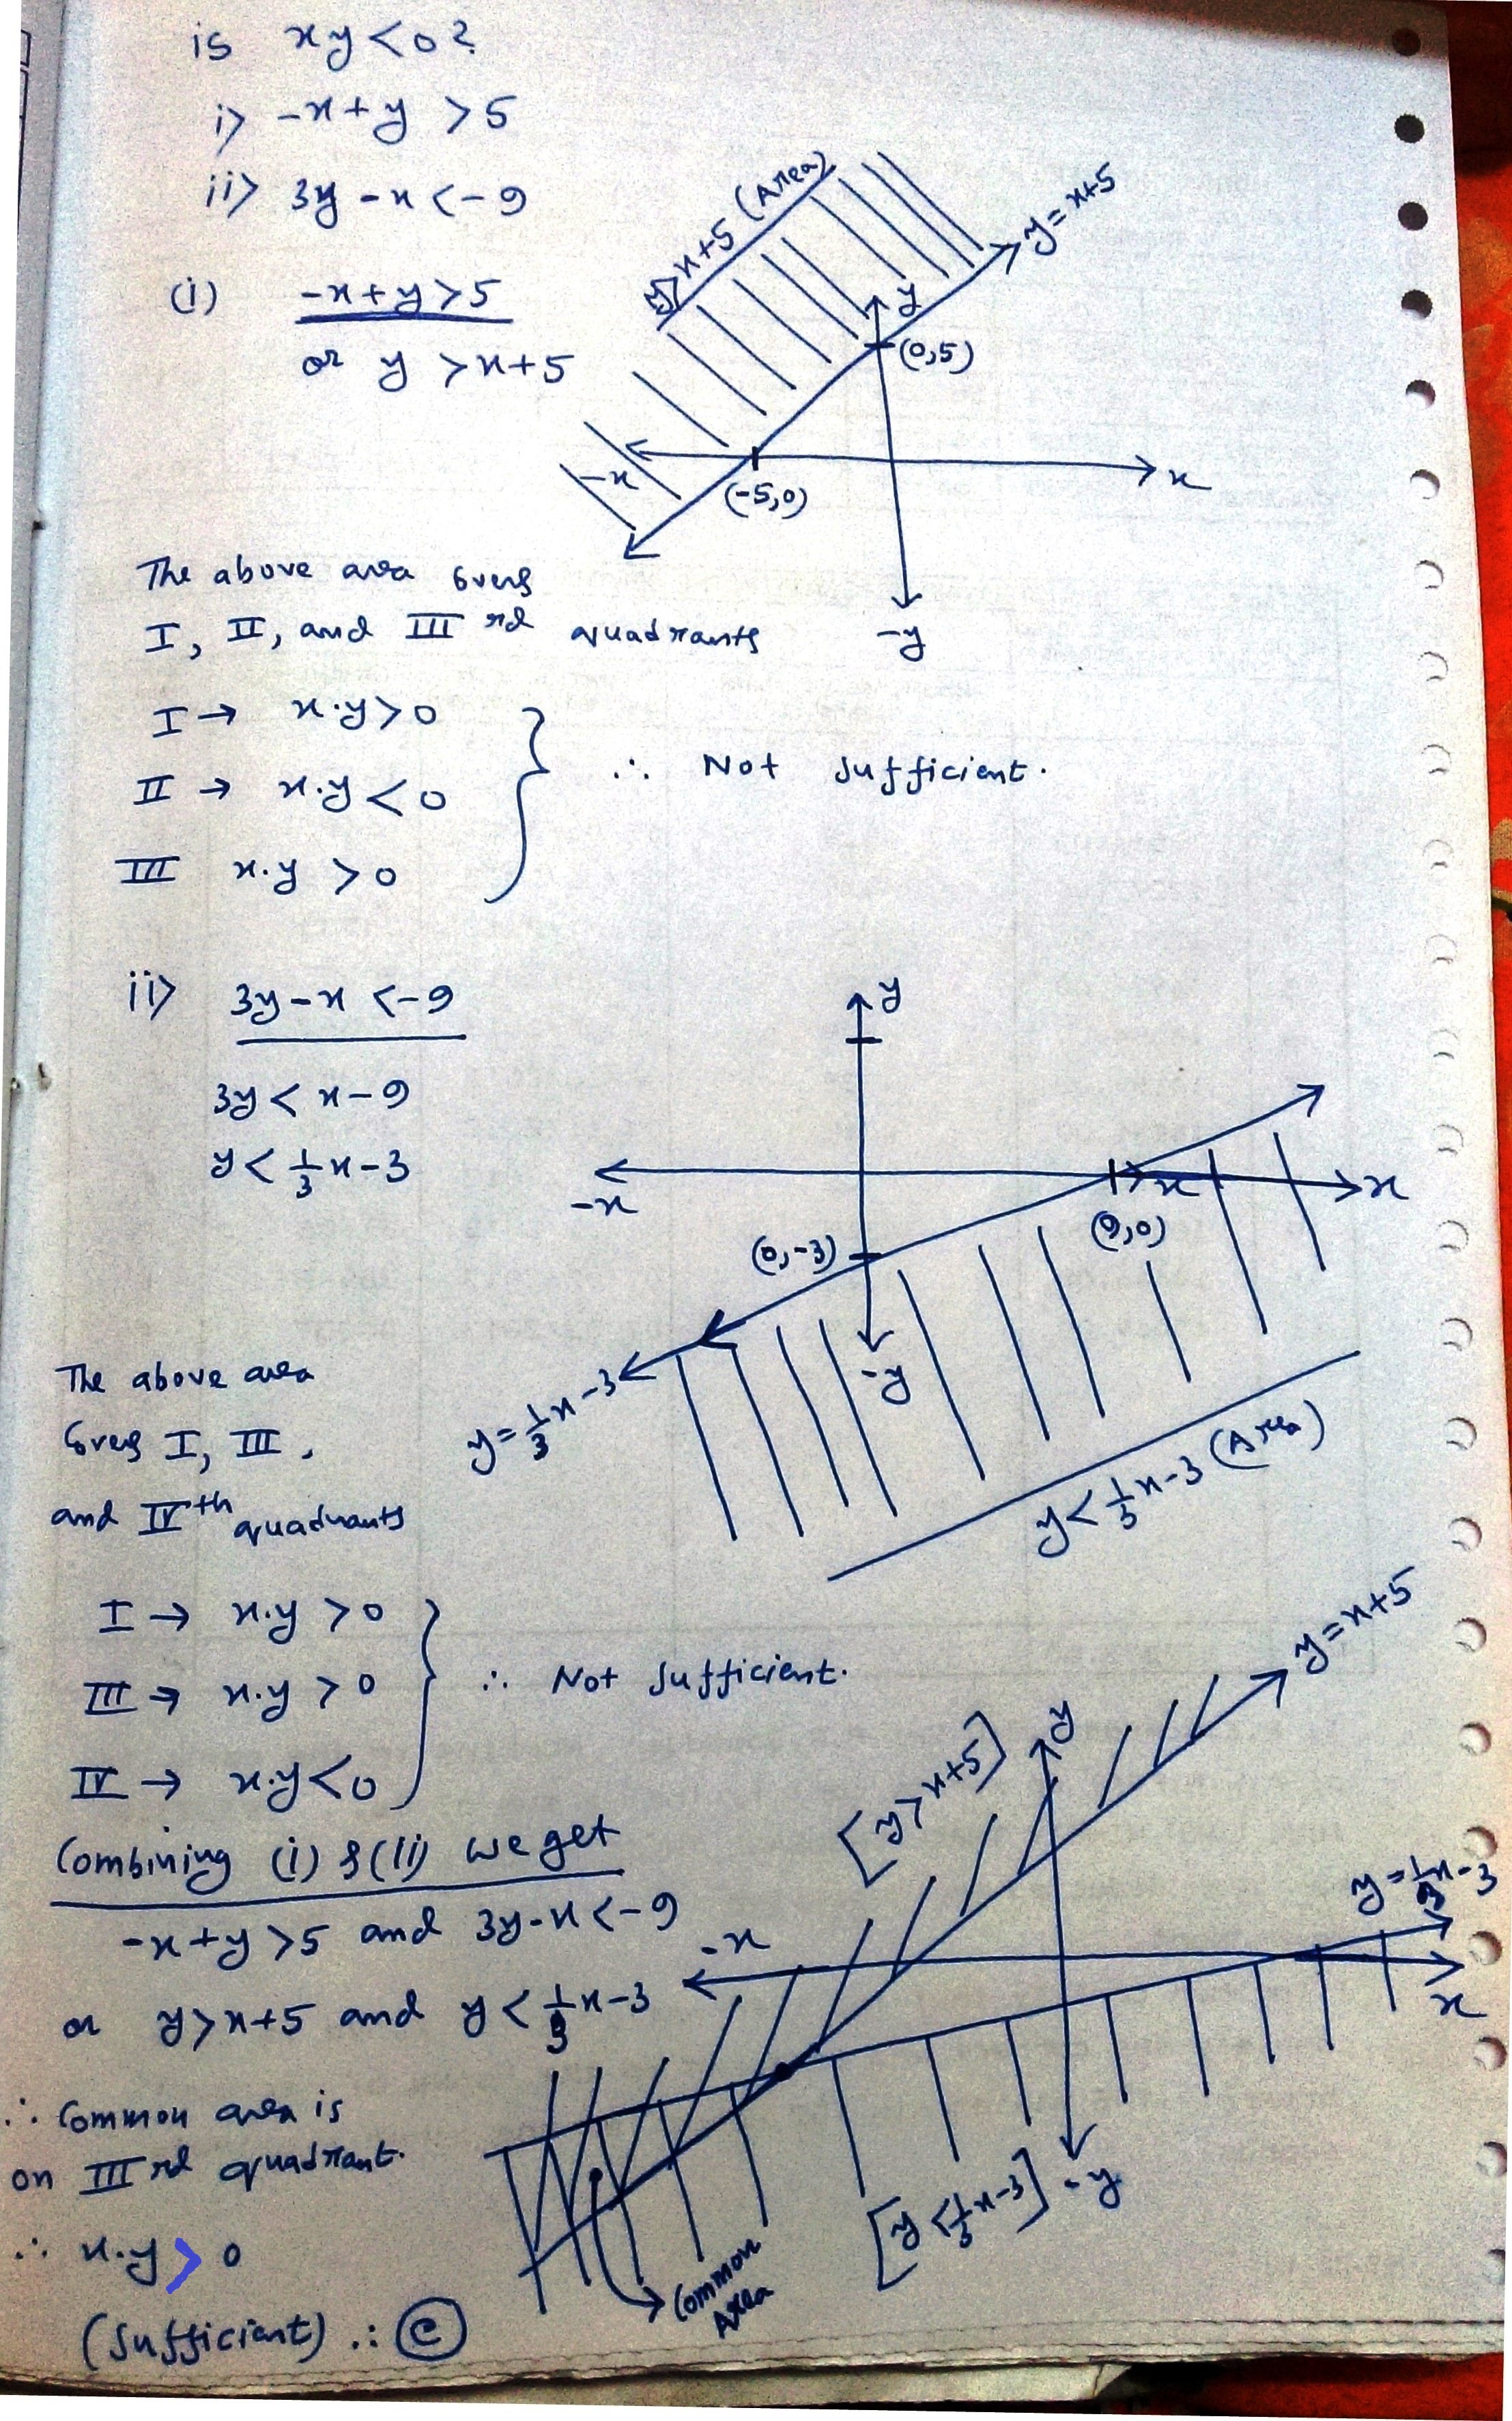 is xy<0?
i> -x+y >5
ii> 3y-x<-9
(i) -x+y>5
or y >x+5
y>x+5 (Area)
y=x+5
y
(0,5)
-x
x
(-5,0)
-y
The above area covers
I, II, and III rd quadrants
I → x.y>0
II → x.y<0
III x.y >0
∴ Not sufficient.
ii> 3y-x <-9
3y< x-9
y< 1/3 x-3
y
-x
x
x
(0,-3)
(9,0)
-y
y=1/3 x-3
y<1/3 x-3 (Area)
The above area
covers I, III,
and IV th quadrants
I → x.y >0
III → x.y >0
IV → x.y<0
∴ Not sufficient.
Combining (i) &(ii) we get
-x+y>5 and 3y-x<-9
or y>x+5 and y<1/3 x-3
∴ Common area is
on III rd quadrant.
∴ x.y > 0
(Sufficient) ∴ (c)
[y>x+5]
y
y=x+5
y=1/3 x-3
-x
x
[y<1/3 x-3]
-y
Common
Area